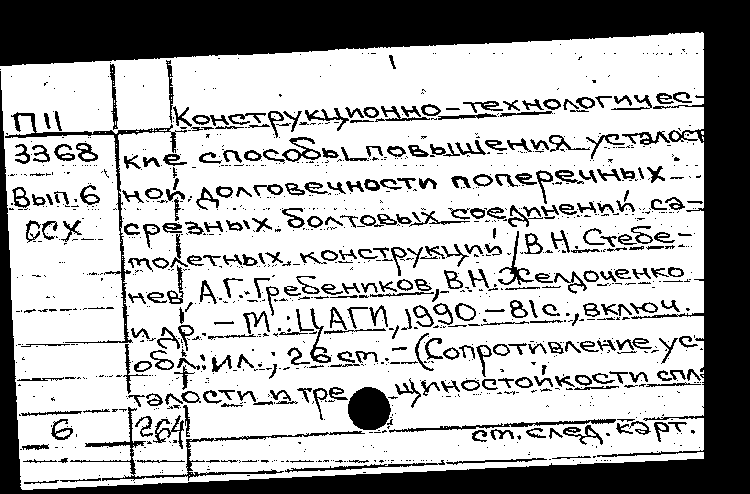 П11 Конструкционно-технологичес-
3368 кие способы повышения усталост
Вып.6 ной долговечности поперечных
ОСХ срезных болтовых соединений са-
молетных конструкций / В.Н. Стебе-
нев, А.Г. Гребеников, В.Н. Желдоченко
и др. – М.: ЦАГИ, 1990. – 81 с., включ.
обл.: ил.; 26 см. – (Сопротивление ус-
талости и трещиностойкости спла
6 264 см. след. карт.